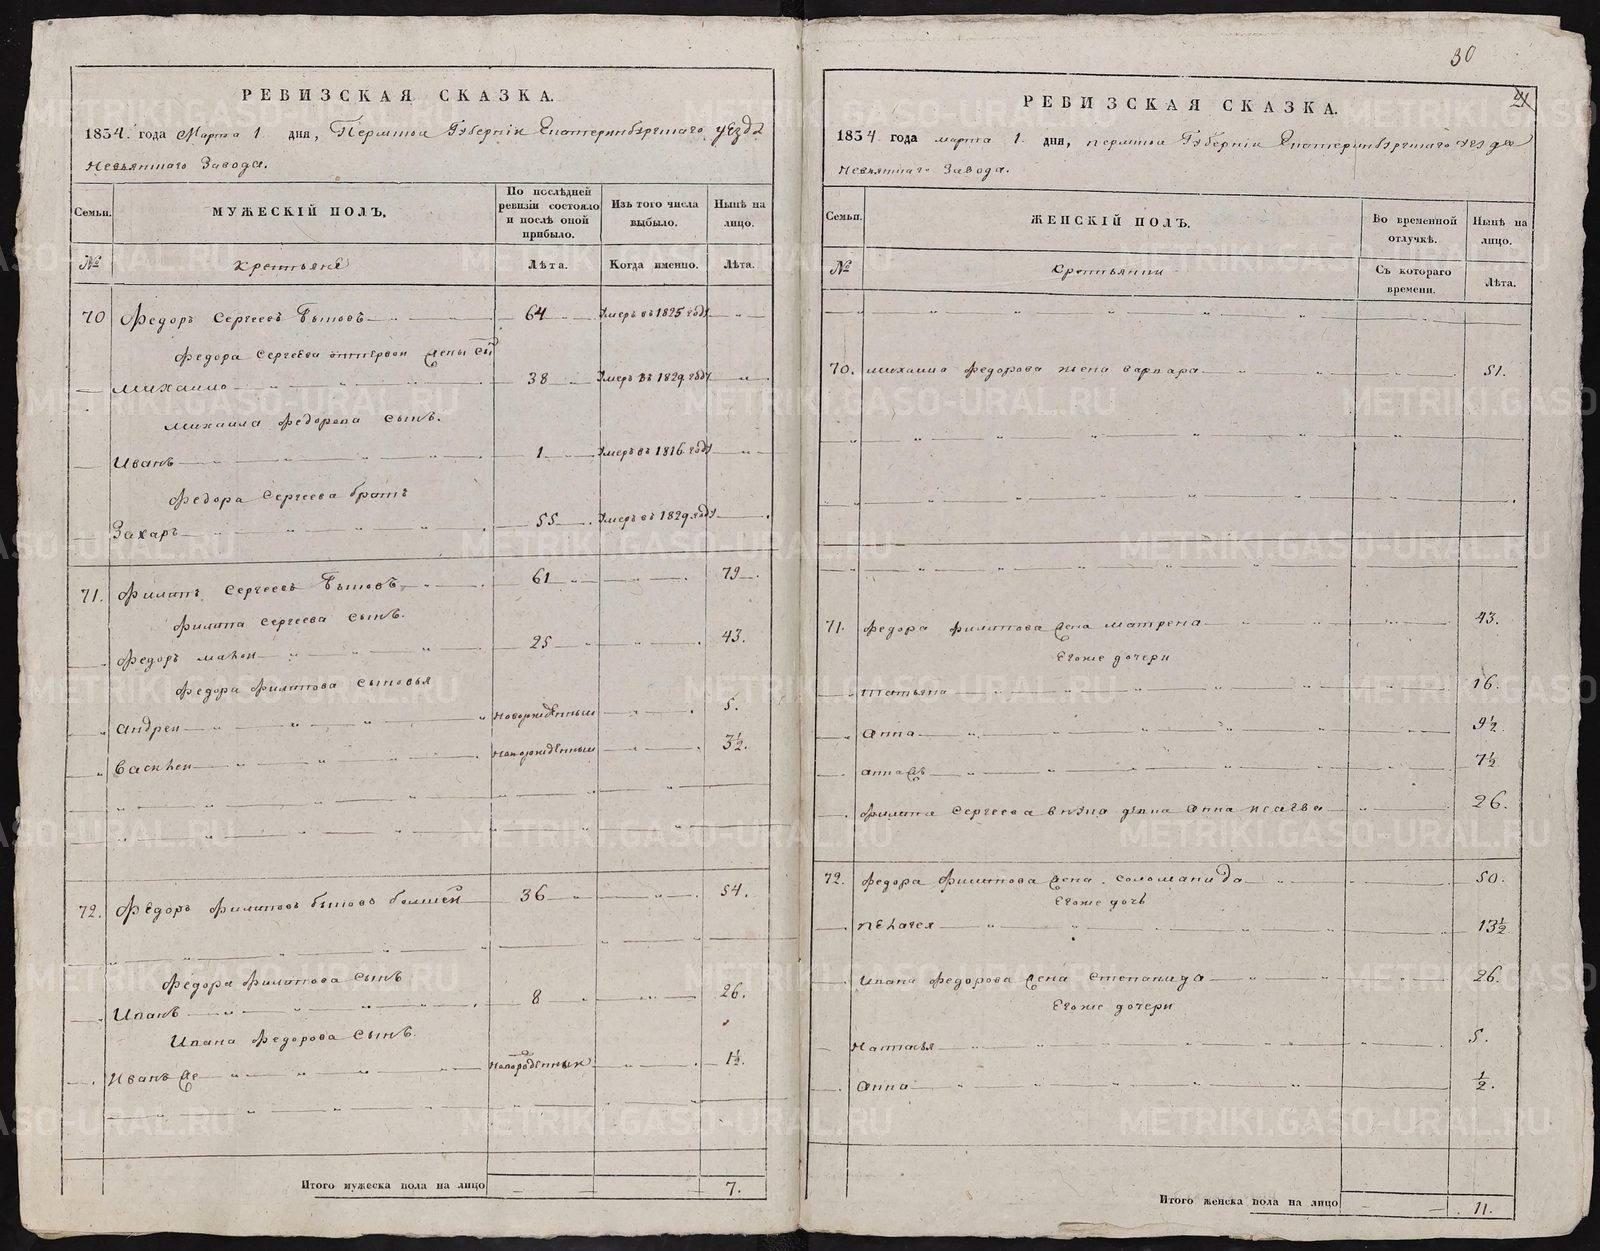 РЕВИЗСКАЯ СКАЗКА.
1834. года Марта 1. дня, Пермской Губернiи Екатеринбургскаго уезда
Невьянскаго Завода.
Семьи.
МУЖЕСКIЙ ПОЛЪ.
По послѣдней ревизiи состояло и послѣ оной прибыло.
Изъ того числа выбыло.
Нынѣ на лицо.
№
крестьяне
Лѣта.
Когда именно.
Лѣта.
70 Федоръ Сергеевъ Бытовъ 64 Умеръ въ 1825 году
Федора Сергеева от первой жены
Михайло 38 Умеръ въ 1829 году
Михаила Федорова сынъ.
Иванъ 1 Умеръ въ 1816 году
Федора Сергеева братъ
Захаръ 55 Умеръ въ 1829 году
71. Филипъ Сергеевъ Бытовъ 61 79
Филипа Сергеева сынъ.
Федоръ 25 43.
Федора Филипова сыновья
Андреи 5.
3½.
72. Федоръ Филиповъ Бытовъ 36 54.
Федора Филипова сынъ
Иванъ 8 26.
Ивана Федорова сынъ.
Иванъ же 1½.
Итого мужеска пола на лицо 7.
30
РЕВИЗСКАЯ СКАЗКА.
1834 года марта 1. дня, пермской Губернiи Екатеринбургскаго уезда
Невьянскаго Завода.
Семьи.
ЖЕНСКIЙ ПОЛЪ.
Во временной отлучкѣ.
Нынѣ на лицо.
№
Крестьянки
Съ котораго времени.
Лѣта.
70. михаила федорова жена варвара 51.
71. федора филипова жена матрена 43.
Егоже дочери
татьяна 16.
Анна 9½
анна же 7½
филипа Сергеева внука Анна Исаева 26.
72. федора Филипова жена Соломанида 50.
Егоже дочь
Пелагея 13½
Ивана Федорова жена Степанида 26
Егоже дочери
Наталья 5.
Анна ½.
Итого женска пола на лицо 11.
METRIKI.GASO-URAL.RU